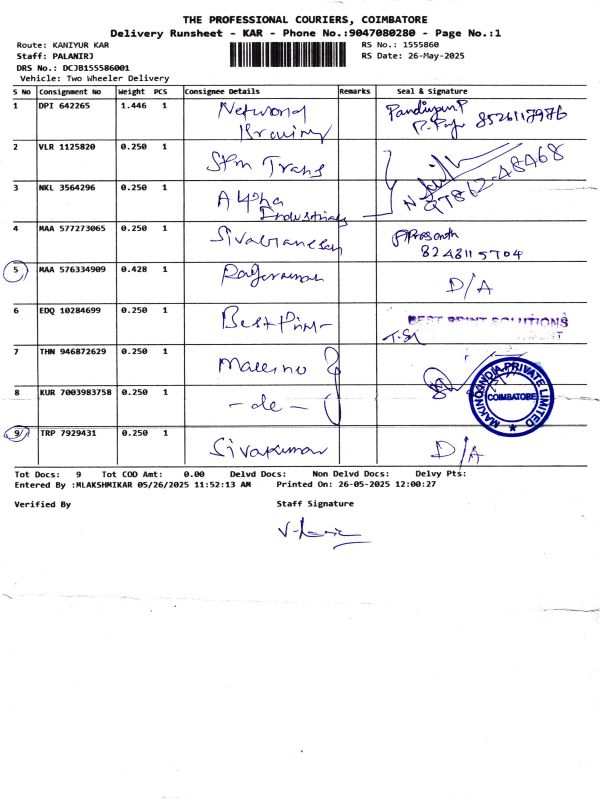 THE PROFESSIONAL COURIERS, COIMBATORE
Delivery Runsheet - KAR - Phone No.:9047080280 - Page No.:1
Route: KANIYUR KAR RS No.: 1555860
Staff: PALANIRJ RS Date: 26-May-2025
DRS No.: DCJB1555860001
Vehicle: Two Wheeler Delivery
S No Consignment No Weight PCS Consignee Details Remarks Seal & Signature
1 DPI 642265 1.446 1 Network 8526117976
2 VLR 1125820 0.250 1 Stm Trans
3 NKL 3564296 0.250 1 Alpha Industrials 97862-48468
4 MAA 577273065 0.250 1 Sivaganesan Prasanth
8248115704
5 MAA 576334909 0.428 1 D/A
6 EDQ 10284699 0.250 1 Best Print BEST PRINT SOLUTIONS
7 THN 946872629 0.250 1 Makino
8 KUR 7003983758 0.250 1 - do - MAKINO INDIA PRIVATE LIMITED COIMBATORE
9 TRP 7929431 0.250 1 Sivakumar D/A
Tot Docs: 9 Tot COD Amt: 0.00 Delvd Docs: Non Delvd Docs: Delvy Pts:
Entered By :MLAKSHMIKAR 05/26/2025 11:52:13 AM Printed On: 26-05-2025 12:00:27
Verified By Staff Signature